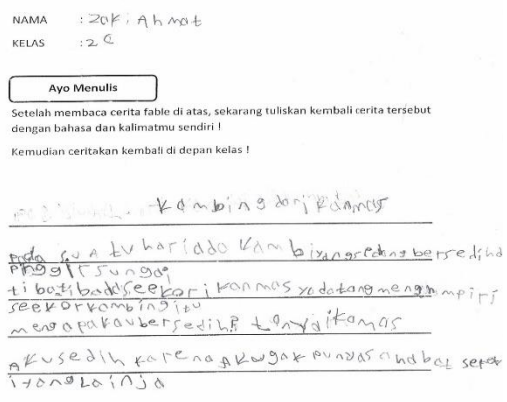 NAMA : Zaki Ahmat
KELAS : 2C
Ayo Menulis
Setelah membaca cerita fable di atas, sekarang tuliskan kembali cerita tersebut
dengan bahasa dan kalimatmu sendiri !
Kemudian ceritakan kembali di depan kelas !
Kambing dari kanmas
Pada suatu hari ado kambi yang sedang bersedihd
pinggir sungai
tibatibaddseekor ikanmas yadatang menghmpiri
seekor kambing itu
mengapakau bersedih? tanya ikamas
akusedih karena akugak punyasahabat seper
iyang lainja